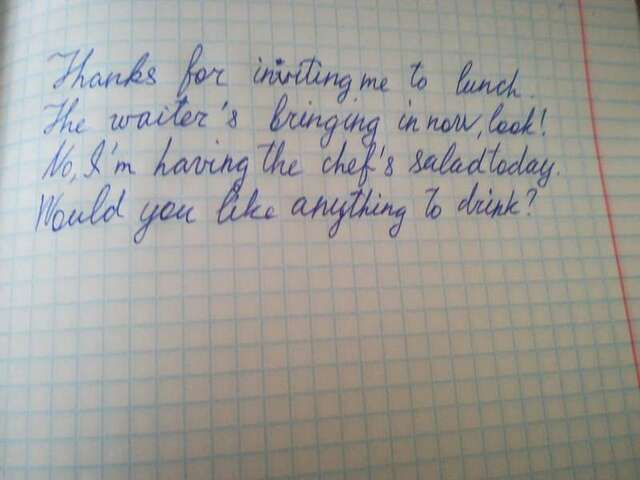 Thanks for inviting me to lunch.
The waiter's bringing in now, look!
No, I'm having the chef's salad today.
Would you like anything to drink?